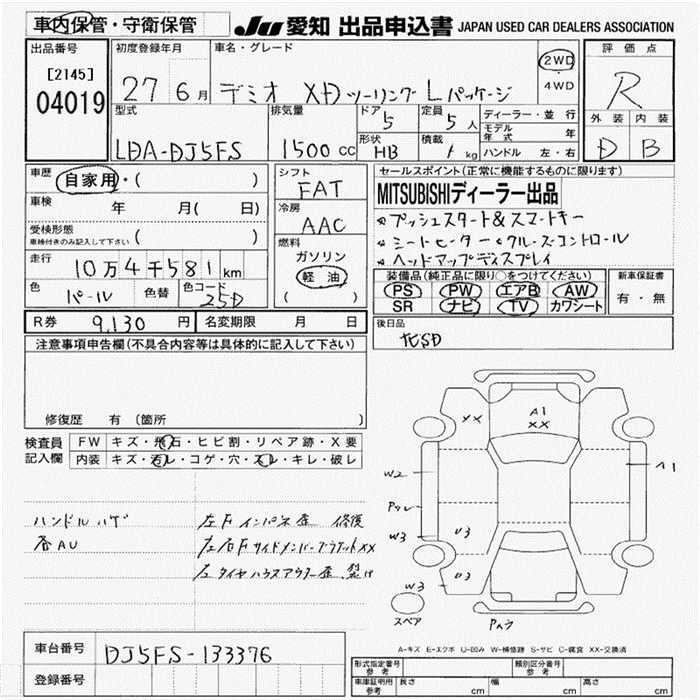 車内保管・守衛保管
JU 愛知 出品申込書 JAPAN USED CAR DEALERS ASSOCIATION
出品番号
[2145]
04019
初度登録年月
27 6月
車名・グレード
デミオ XD ツーリング Lパッケージ
2WD
4WD
評価点
R
外装 内装
D B
型式
LDA-DJ5FS
排気量
1500 cc
ドア
5
定員
5人
形状
HB
積載
kg
ディーラー・並行
モデル年式 年
ハンドル 左・右
車歴
自家用・( )
車検 年 月( 日)
受検形態
車検付きのみ記入して下さい ( )
走行
10万4千581km
色
パール
色替
色コード
25D
シフト
FAT
冷房
AAC
燃料
ガソリン
軽油
( )
セールスポイント(正常に機能するものに限ります)
MITSUBISHIディーラー出品
プッシュスタート&スマートキー
シートヒーター クルーズコントロール
ヘッドアップディスプレイ
装備品(純正品に限り○をつけてください)
PS PW エアB AW
SR ナビ TV カワシート
新車保証書
有・無
R券 9,130円
名変期限 月 日
後日品
注意事項申告欄(不具合内容等は具体的に記入して下さい)
修復歴 有 (箇所 )
検査員
記入欄
FW キズ・飛石・ヒビ割・リペア跡・X要
内装 キズ・汚レ・コゲ・穴・スレ・キレ・破レ
ハンドルハゲ
各AU
左Fインパネ歪 修復
左右FサイドメンバーブラケットXX
左タイヤハウスアウター歪
XX
A1
XX
W2
A1
W3
U3
W3
U3
スペア
A-キズ E-エクボ U-凹み W-補修跡 S-サビ C-腐食 XX-交換済
車台番号 DJ5FS-133376
登録番号
形式指定番号 参考
類別区分番号 参考
車庫証明用 参考
長さ cm
幅 cm
高さ cm